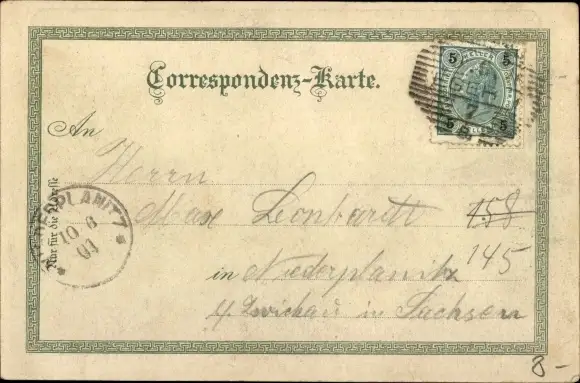 Correspondenz-Karte.
An
Herrn
Max Leonhardt 158
145
in Niederplanitz
in Sachsen
Nur für die Adresse
NIEDERPLANITZ
10 6
01
5 5
5 5
HELLER
8-